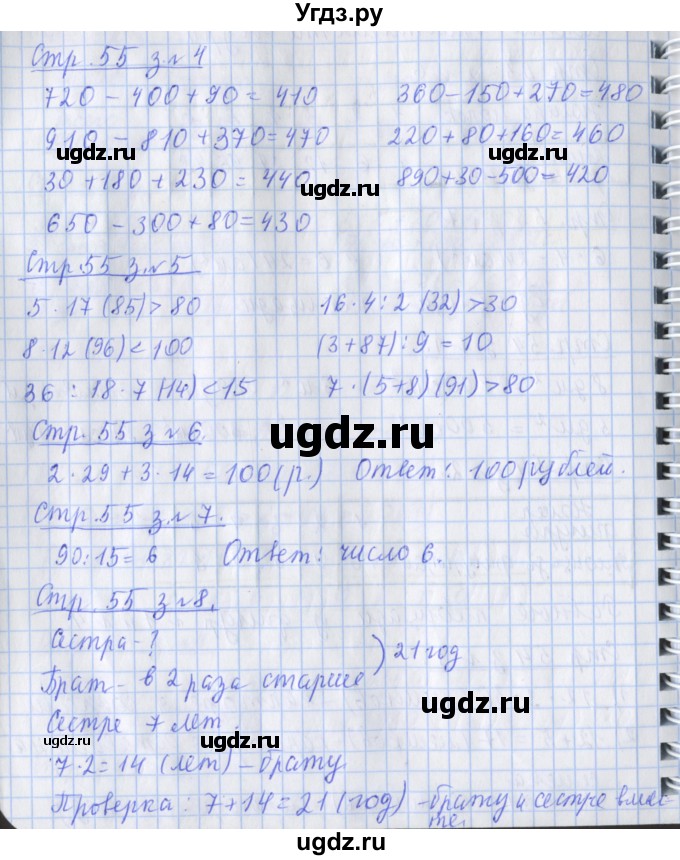 Угдз.ру
Стр. 55 з. № 4
720 - 400 + 90 = 410 360 - 150 + 270 = 480
910 - 810 + 370 = 470 220 + 80 + 160 = 460
ugdz.ru ugdz.ru
30 + 180 + 230 = 440 890 + 30 - 500 = 420
ugdz.ru
650 - 300 + 80 = 430
Стр. 55 з. № 5
5 · 17 (85) > 80 16 · 4 : 2 (32) > 30
8 · 12 (96) < 100 (3 + 87) : 9 = 10
36 : 18 · 7 (14) < 15 7 · (5 + 8) (91) > 80
Стр. 55 з № 6.
ugdz.ru
2 · 29 + 3 · 14 = 100 (р.) Ответ: 100 рублей.
Стр. 55 з. № 7.
90 : 15 = 6 Ответ: число 6.
Стр. 55 з № 8.
Сестра - ?
) 21 год
Брат - в 2 раза старше
ugdz.ru
Сестре 7 лет.
ugdz.ru ugdz.ru
7 · 2 = 14 (лет) - брату
Проверка: 7 + 14 = 21 (год) - брату и сестре вмес-
те.
ugdz.ru ugdz.ru